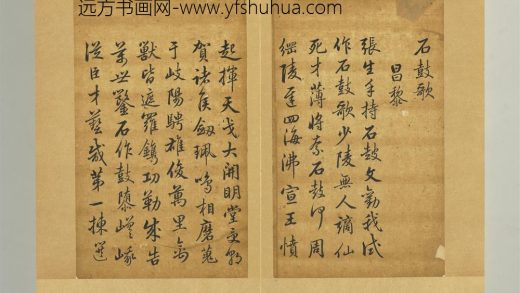 远方书画网-www.yfshuhua.com
石鼓歌
昌黎
張生手持石鼓文勸我試
作石鼓歌少陵無人謫仙
死才薄將奈石鼓何周
綱陵遲四海沸宣王憤
起揮天戈大開明堂受朝
賀諸侯劔珮鳴相磨蒐
于岐陽騁雄俊萬里禽
獸皆遮羅鐫功勒成告
萬世鑿石作鼓隳嵯峨
從臣才藝咸第一揀選